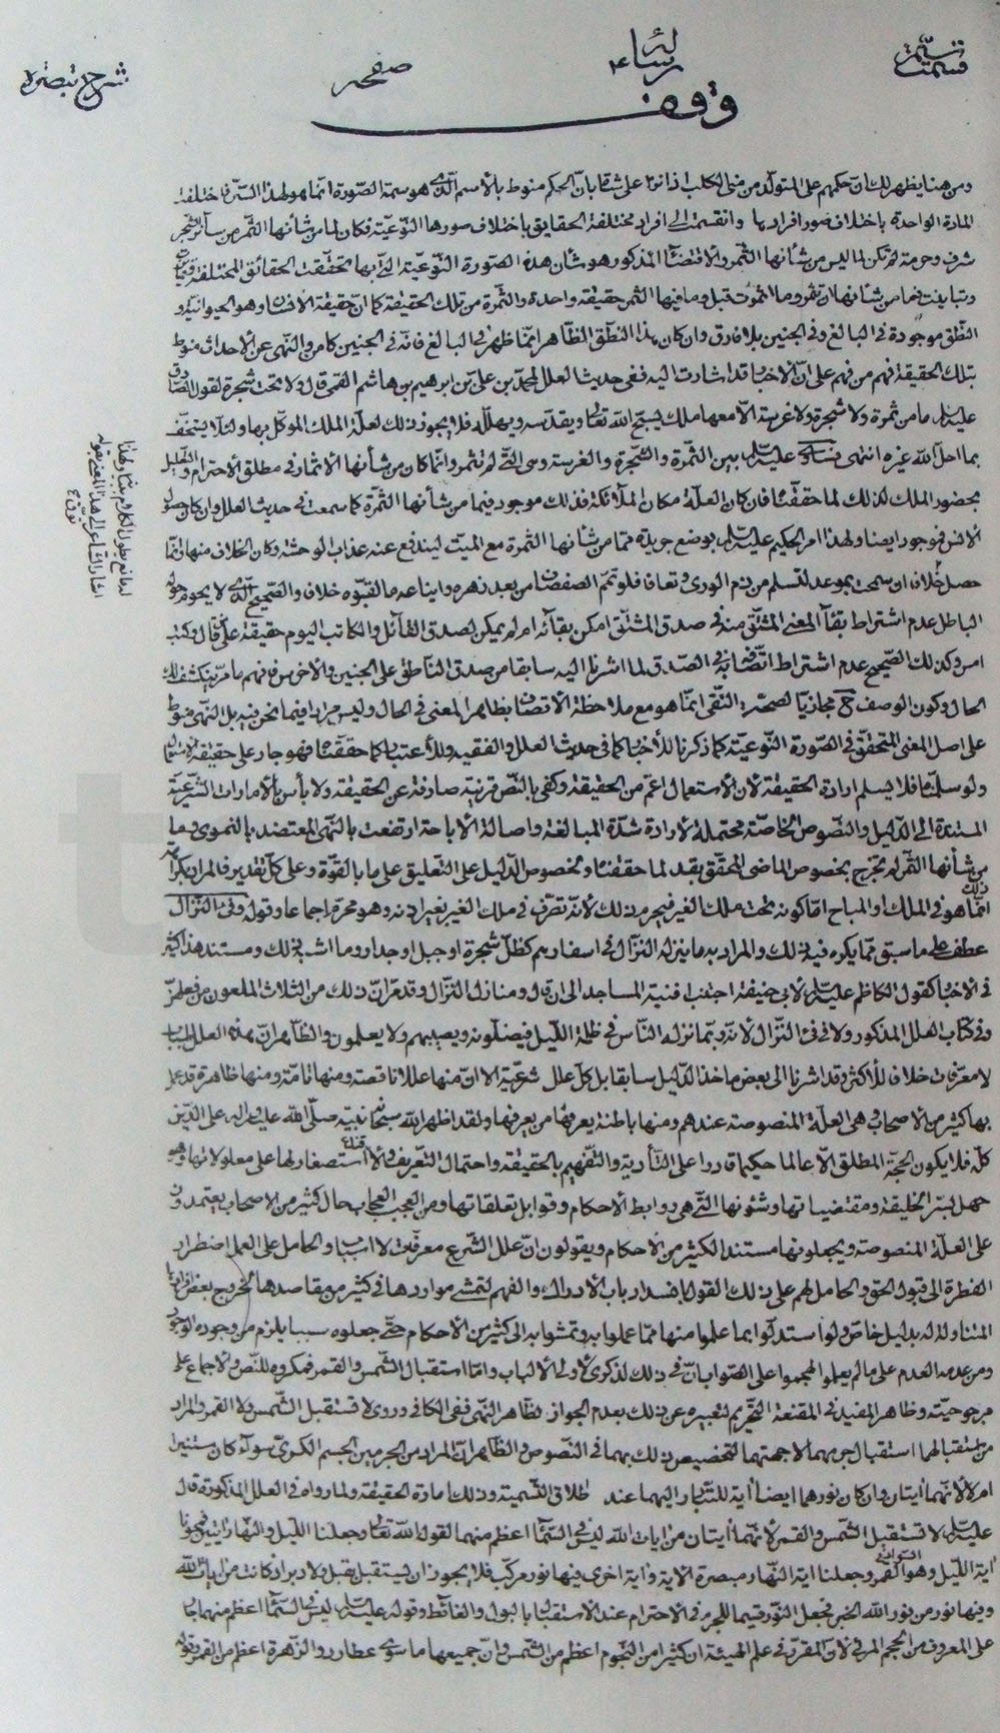 قسمت
رسالة
صفحه
شرح تبصرة
وقف
ومن هنا يظهر لك ان حكمهم على المتولد من الكلب اذا نزا على شاة بان الحكم منوط بالاسم الذى هو سمة الصورة انما هو لهذا السر فاختلفت
المادة الواحدة باختلاف صور افرادها وانقسمت الى افراد مختلفة الحقايق باختلاف صورها النوعية فكان لما من شأنها الثمر من سائر الشجر
شرف وحرمة لم تكن لما ليس من شأنها الثمر والاقتضاء المذكور هو شأن هذه الصورة النوعية التى بها تحققت الحقائق المختلفة
وتباينت فما من شأنها ان تثمر وما اثمرت قبل وما فيها الثمر حقيقة واحدة والثمرة من تلك الحقيقة كما ان حقيقة الانسان وهو الحيوانية و
النطق موجودة فى البالغ وفى الجنين بلا فارق وان كان هذا النطق الظاهر انما ظهر فى البالغ فانه فى الجنين كامن والنهى عن الاحداث منوط
بتلك الحقيقة فافهم من فهم على ان الاخبار قد اشارت اليه ففى حديث العلل لمحمد بن على بن ابرهيم بن هاشم القمى قال ولا تحت شجرة لقول الصادق
عليه السلام ما من ثمرة ولا شجرة ولا غرسة الا معها ملك يسبح الله تعالى ويقدسه ويهلله فلا يجوز ذلك لعلة الملك الموكل بها ولئلا يستخف
بما احل الله غيره انتهى فساوى عليه السلام بين الثمرة والشجرة والغرسة وهى التى لم تثمر وانما كان من شأنها الاثمار فى مطلق الاحترام
بحضور الملك لذلك لما حققنا فان كان العلة مكان الملائكة فذلك موجود فيما من شأنها الثمرة كما سمعت فى حديث العلل وان كان حصول
الانس فموجود ايضا ولهذا امر الحكيم عليه السلام بوضع جريدة مما من شأنها الثمرة مع الميت ليندفع عنه عذاب الوحشة وكان الخلاف منها انما
الباطل عدم اشتراط بقاء المعنى المشتق منه فى صدق المشتق امكن بقاءه ام لم يمكن لصدق القائل والكاتب اليوم حقيقة على قال وكتب
امس وكذلك الصحيح عدم اشتراط اتصافه فى الصدق لما اشرنا اليه سابقا من صدق الناطق على الجنين والاخرس فافهم ما مر ينكشف لك
الحال وكون الوصف مجازيا لصحة النفى انما هو مع ملاحظة الاتصاف بظاهر المعنى فى الحال وليس مرادا فيما نحن فيه بل النهى منوط
على اصل المعنى المتحقق فى الصورة النوعية كما ذكرنا للاخبار كما فى حديث العلل والفقيه وللاعتبار كما حققنا فهو جار على حقيقة الاستعمال
ولو سلمنا فلا يسلم ارادة الحقيقة لان الاستعمال اعم من الحقيقة وكفى بالنص قرينة صارفة عن الحقيقة ولا بأس بالامارات الشرعية
المستندة الى الدليل والنصوص الخاصة محتملة لارادة شدة المبالغة واصالة الاباحة ارتفعت بالنهى المعتضد بالفتوى وما
من شأنها الثمر لم تخرج بخصوص الماضى المحقق بقد لما حققنا وبخصوص الدليل على التعليق على ما بالقوة وعلى كل تقدير فالمراد
انما هو فى الملك او المباح اما كونه تحت ملك الغير فيحرم ذلك لانه تصرف فى ملك الغير بغير اذنه وهو محرم اجماعا وقوله وفىء النزال
عطف على ما سبق مما يكره فيه ذلك والمراد به ما ينزله النزال فى اسفارهم كظل شجرة او جبل او جدار وما اشبه ذلك ومستند هذا كثير
فى الاخبار كقول الكاظم عليه السلام لابى حنيفة اجتنب افنية المساجد الى ان قال ومنازل النزال وقد مر ان ذلك من الثلاث الملعون من فعلهن
وفى كتاب العلل المذكور ولا فى فىء النزال لانه ربما نزله الناس فى ظلمة الليل فيضلونه ويصيبهم ولا يعلمون والظاهر ان هذه العلل اسباب
لا معرفات خلافا للاكثر وقد اشرنا الى بعض مأخذ الدليل سابقا بل كل علل شرعية الا ان منها عللا ناقصة ومنها تامة ومنها ظاهرة قد عمل
بها كثير من الاصحاب وهى العلة المنصوصة عندهم ومنها باطنة يعرفها من يعرفها ولقد اظهر الله سبحانه نبيه صلى الله عليه واله على الدين
كله فلا يكون الحجة المطلق الا عالما حكيما قادرا على التأدية والتفهيم بالحقيقة واحتمال التعريف لا استصغار لها على معلولاتها وهو
جهل بسر الخليقة ومقتضياتها وشئونها التى هى روابط الاحكام وقوابل تعلقاتها ومن العجب العجاب حال كثير من الاصحاب يعتمدون
على العلة المنصوصة ويجعلونها مستند الكثير من الاحكام ويقولون ان علل الشرع معرفات لا اسباب والحامل على العمل اضطرار
الفطرة الى قبول الحق والحامل لهم على ذلك القول انسداد باب الادراك والفهم لتمشى مواردها فى كثير من مقاصدها لخروج بعض افرادها
المتناولة له بدليل خاص ولو استدلوا بما علموا منها مما عملوا به وتمشوا به الى كثير من الاحكام حتى جعلوه سببا يلزم من وجوده الوجود
ومن عدمه العدم على ما لم يعلموا لهجموا على الصواب ان فى ذلك لذكرى لاولى الالباب واما استقبال الشمس والقمر فمكروه للنص والاجماع على
مرجوحيته وظاهر المفيد فى المقنعة التحريم لتعبيره عن ذلك بعدم الجواز لظاهر النهى ففى الكافى وروى لا تستقبل الشمس ولا القمر والمراد
من استقبالهما استقبال جرمهما لا جهتهما لتخصيص ذلك بهما فى النصوص والظاهر ان المراد من الجرمين الجسم الكرى سواء كان مستنيرا
ام لا لانهما ايتان وان كان نورهما ايضا اية للتبادر اليهما عند اطلاق التسمية وذلك امارة الحقيقة ولما رواه فى العلل المذكورة قال
عليه السلام لا تستقبل الشمس والقمر لانهما ايتان من ايات الله ليس فى السماء اعظم منهما لقول الله تعالى وجعلنا الليل والنهار ايتين فمحونا
اية الليل وهو السواد فى القمر وجعلنا اية النهار مبصرة الاية واية اخرى فيها نور مركب فلا يجوز ان يستقبل بقبل ولا دبر اذ كانت من ايات الله
وفيها نور من نور الله الخبر فجعل النور قسيما للجرم فى الاحترام عند الاستقبال بالبول والغائط وقوله عليه السلام ليس فى السماء اعظم منهما جار
على المعروف من الحجم المرئى لان المقرر فى علم الهيئة ان كثيرا من النجوم اعظم من الشمس وان جميعها ما سوى عطارد والزهرة اعظم من القمر وقوله